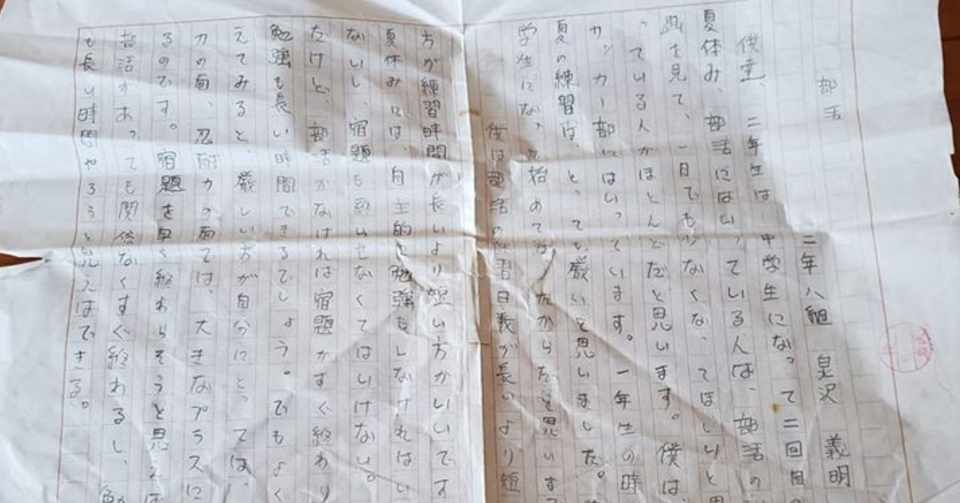 部活
二年八組 沢 義明
僕達、二年生は、中学生になって二回目
夏休み、部活にはいっている人は、部活の
画を見て、一日でも少なくなってほしいと思
っている人がほとんどだと思います。僕は、
サッカー部にはいっています。一年生の時
夏の練習は、とっても厳しいと思いました。
学生になって始めてだったからだと思います
僕は部活の練習日数が長いより短
方が練習時間が長いより短い方がいいです
夏休みには、自主的な勉強もしなければい
ないし、宿題も終わらせなくてはいけない。
だけど、部活がなければ宿題がすぐ終わり
勉強も長い時間できるでしょう。でもよく
えてみると、厳しい方が自分にとっては、
力の面、忍耐力の面では、大きなプラスに
るのです。宿題を早く終わらそうと思えば
部活があっても関係なくすぐ終わるし、勉
も長い時間やろうと思えばできる。